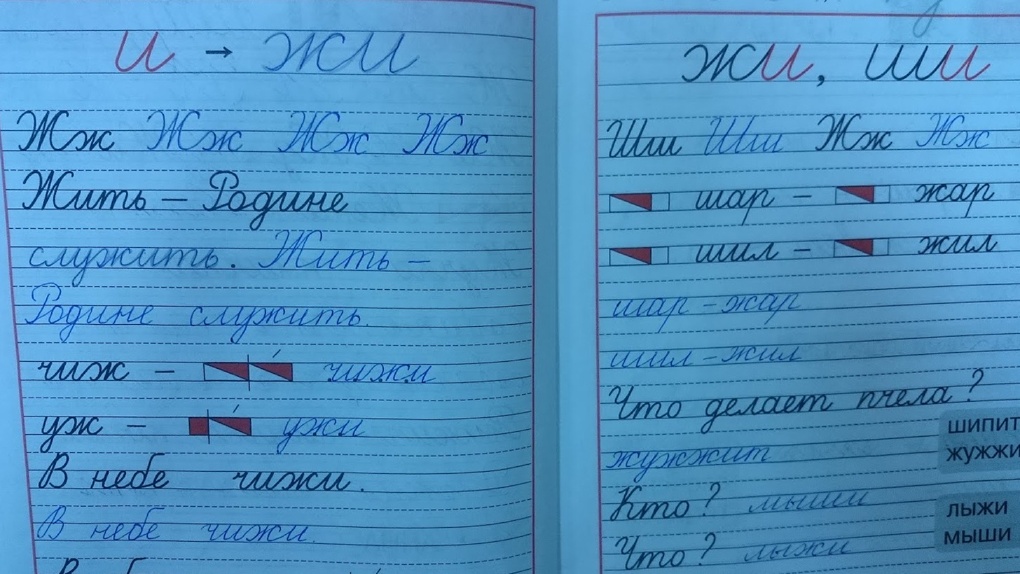 и → жи
Жж Жж Жж Жж
Жить – Родине
служить. Жить –
Родине служить.
чиж – чижи
уж – ужи
В небе чижи.
В небе чижи.
жи, ши
Шш Шш Жж Жж
шар – жар
шил – жил
шар – жар
шил – жил
Что делает пчела?
жужжит
шипит
жужжи
Кто? мыши
Что? лыжи
лыжи
мыши